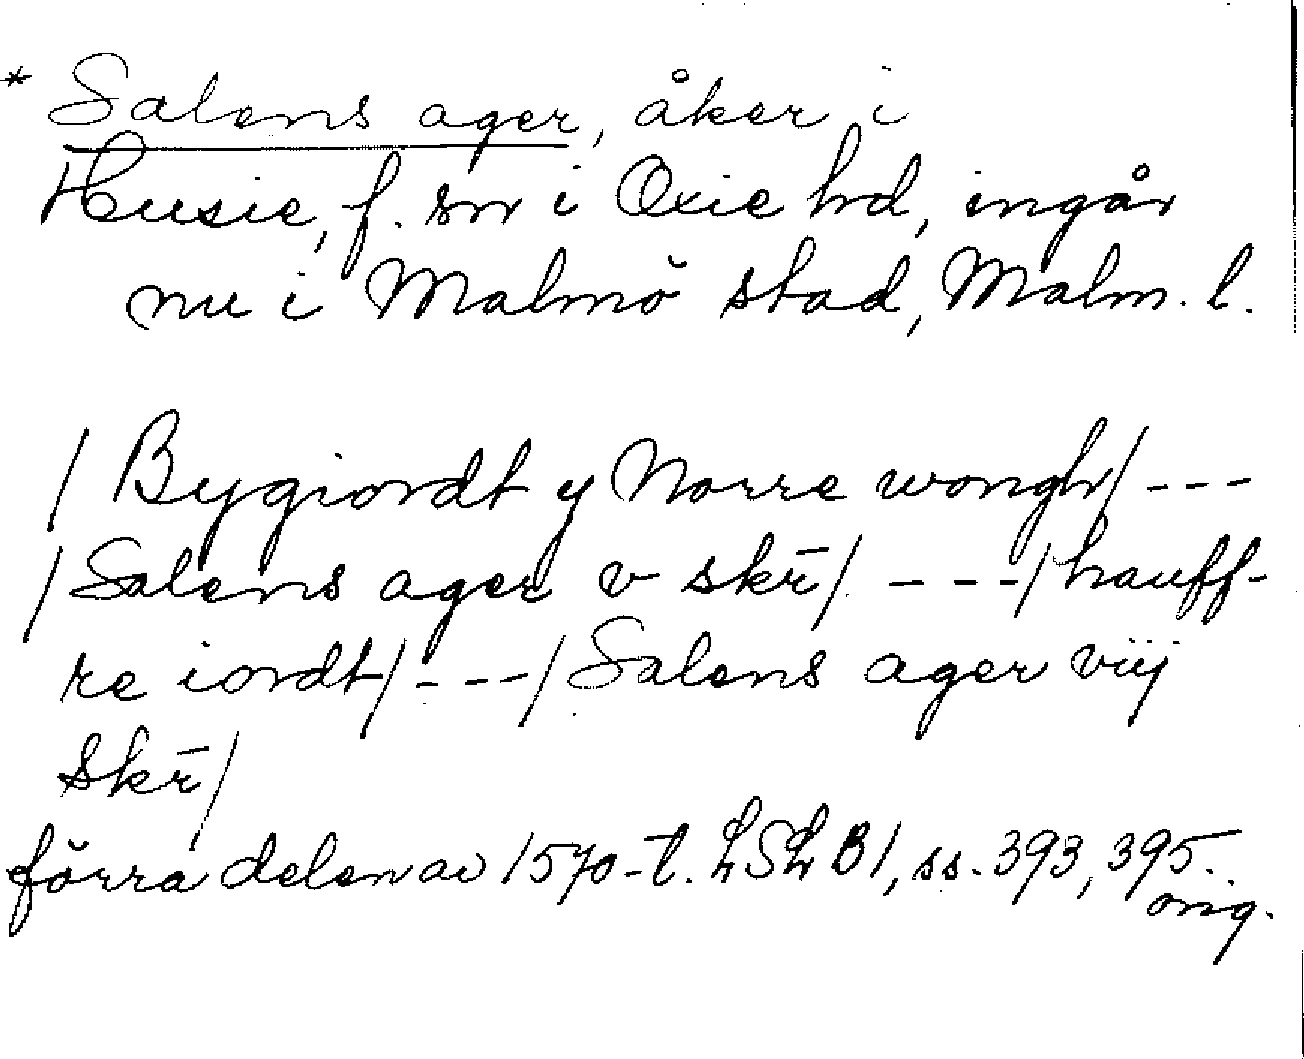 * Salens ager, åker i
Husie, f. sn i Oxie hd, ingår
nu i Malmö stad, Malm. l.
/Bygiordt y Norre wongh/---
/Salens ager v skr̄/ ---/hauff-
re iordt/---/Salens ager viij
skr̄/
förra delen av 1570-t. LSL B1, ss. 393, 395.
orig.